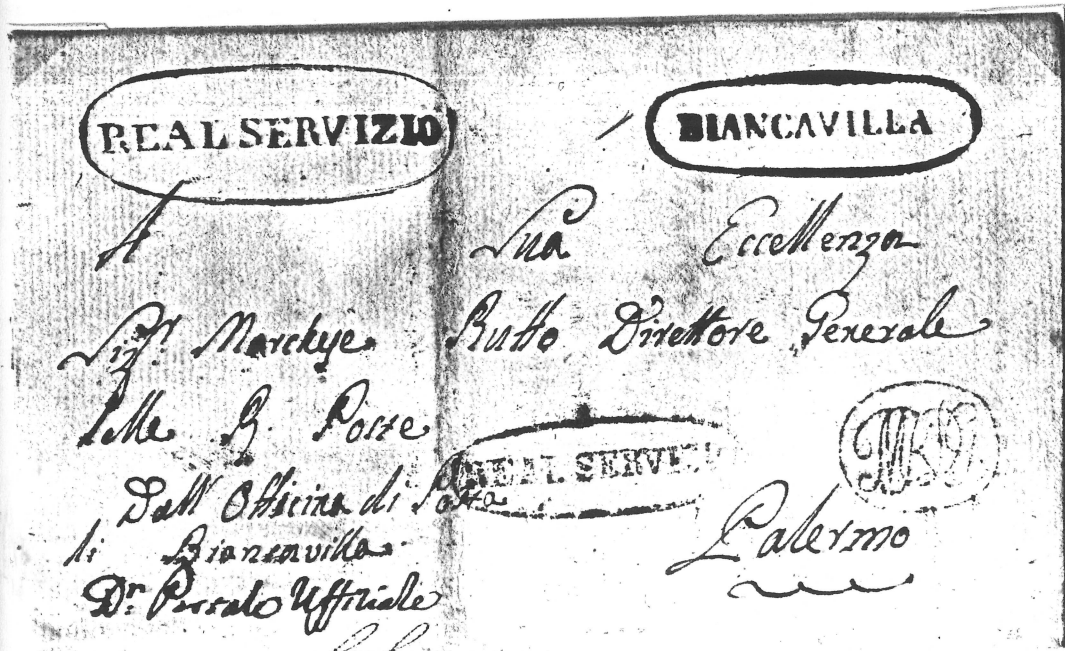 REAL SERVIZIO BIANCAVILLA
A Sua Eccellenza
Sigr. Marchese Ruffo Direttore Generale
delle R. Poste
REAL SERVIZ
Dall' Officina di Posta
di Biancavilla
Palermo
Dn. Uffiziale